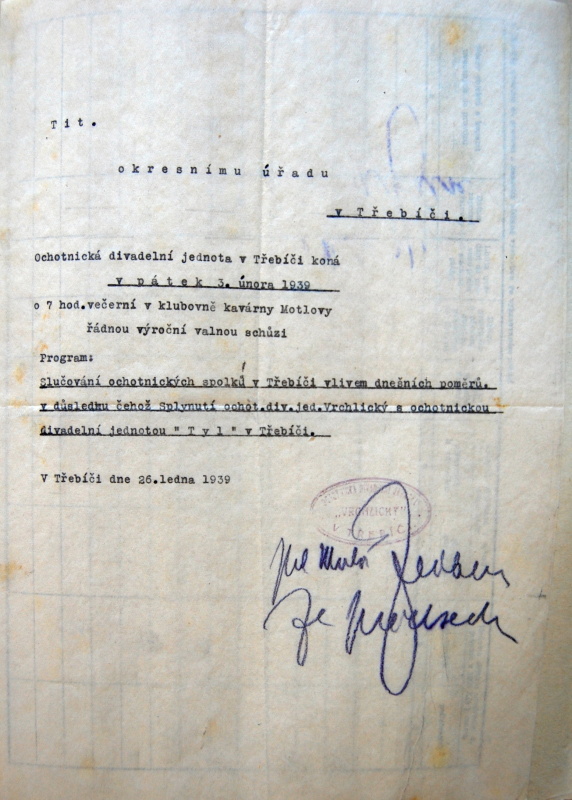 Tit.
okresnímu úřadu
v Třebíči.
Ochotnická divadelní jednota v Třebíči koná
v pátek 3. února 1939
o 7 hod.večerní v klubovně kavárny Motlovy
řádnou výroční valnou schůzi
Program:
Slučování ochotnických spolků v Třebíči vlivem dnešních poměrů.
v důsledku čehož Splynutí ochot.div.jed.Vrchlický s ochotnickou
divadelní jednotou "Tyl" v Třebíči.
V Třebíči dne 26.ledna 1939
"VRCHLICKÝ"
V TŘEBÍČI